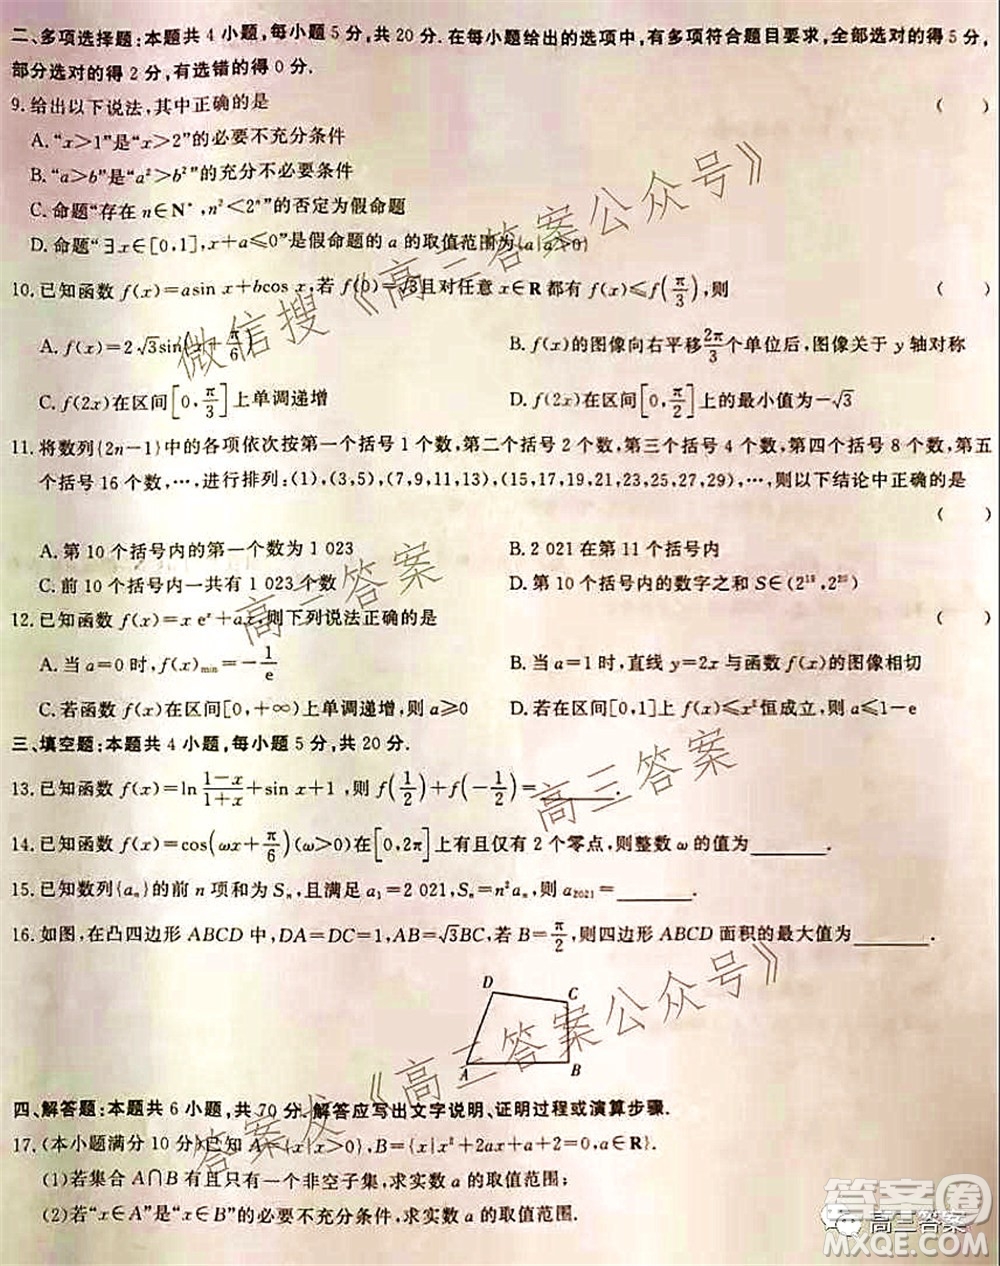 二、多项选择题:本题共 4 小题,每小题 5 分,共 20 分.在每小题给出的选项中,有多项符合题目要求,全部选对的得 5 分,
部分选对的得 2 分,有选错的得 0 分.
9.给出以下说法,其中正确的是 ( )
A.“x>1”是“x>2”的必要不充分条件
B.“a>b”是“a²>b²”的充分不必要条件
C.命题“存在 n∈N*,n²<2ⁿ”的否定为假命题
D.命题“∃x∈[0,1],x+a≤0”是假命题的 a 的取值范围为{a|a>0}
10.已知函数 f(x)=asin x+bcos x,若 f(0)=√3且对任意 x∈R 都有 f(x)≤f(π/3),则 ( )
A.f(x)=2√3sin(x+π/6) B.f(x)的图像向右平移2π/3个单位后,图像关于 y 轴对称
C.f(2x)在区间[0,π/3]上单调递增 D.f(2x)在区间[0,π/2]上的最小值为-√3
11.将数列{2n-1}中的各项依次按第一个括号 1 个数,第二个括号 2 个数,第三个括号 4 个数,第四个括号 8 个数,第五
个括号 16 个数,…,进行排列:(1),(3,5),(7,9,11,13),(15,17,19,21,23,25,27,29),…,则以下结论中正确的是
( )
A.第 10 个括号内的第一个数为 1 023 B.2 021 在第 11 个括号内
C.前 10 个括号内一共有 1 023 个数 D.第 10 个括号内的数字之和 S∈(2¹⁹,2²⁰)
12.已知函数 f(x)=x eˣ+ax,则下列说法正确的是 ( )
A.当 a=0 时,f(x)min=-1/e B.当 a=1 时,直线 y=2x 与函数 f(x)的图像相切
C.若函数 f(x)在区间[0,+∞)上单调递增,则 a≥0 D.若在区间[0,1]上 f(x)≤x²恒成立,则 a≤1-e
三、填空题:本题共 4 小题,每小题 5 分,共 20 分.
13.已知函数 f(x)=ln (1-x)/(1+x)+sin x+1,则 f(1/2)+f(-1/2)=______.
14.已知函数 f(x)=cos(ωx+π/6)(ω>0)在[0,2π]上有且仅有 2 个零点,则整数 ω 的值为______.
15.已知数列{aₙ}的前 n 项和为 Sₙ,且满足 a₁=2 021,Sₙ=n²aₙ,则 a₂₀₂₁=______.
16.如图,在凸四边形 ABCD 中,DA=DC=1,AB=√3BC,若 B=π/2,则四边形 ABCD 面积的最大值为______.
D
C
A
B
四、解答题:本题共 6 小题,共 70 分.解答应写出文字说明、证明过程或演算步骤.
17.(本小题满分 10 分)已知 A={x|x>0},B={x|x²+2ax+a=0,a∈R}.
(1)若集合 A∩B 有且只有一个非空子集,求实数 a 的取值范围;
(2)若“x∈A”是“x∈B”的必要不充分条件,求实数 a 的取值范围.
微信搜《高三答案公众号》
高三答案
高三答案
答案发《高三答案公众号》
高三答案
答案圈
MXQE.COM